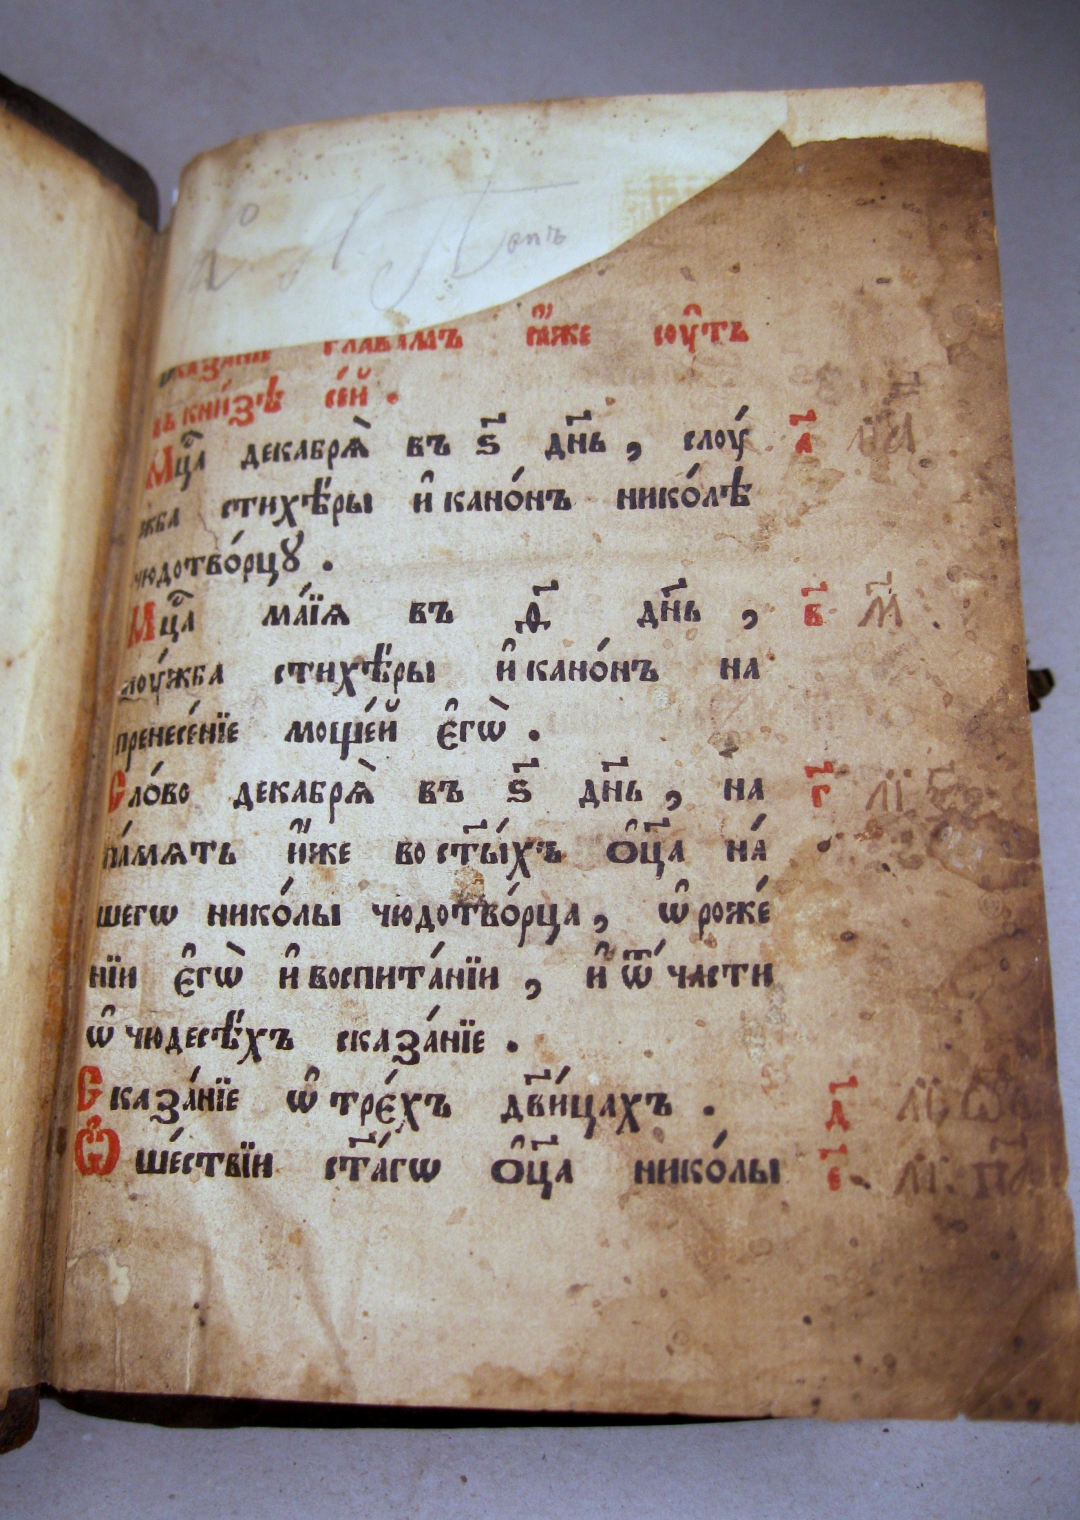 сказанїе главамъ ꙗ҆́же сꙋ́ть
въ кни́зѣ се́й .
Мц҇а декабрѧ̀ въ ѕ҃ дн҃ь , слоу́ а҃
жба стихѣ́ры и҆ кано́нъ нико́лѣ
чюдотво́рцꙋ .
Мц҇а ма́їѧ въ ѳ҃ дн҃ь , в҃
слоу́жба стихѣ́ры и҆ кано́нъ на
пренесе́нїе моще́й є҆гѡ̀ .
Сло́во декабрѧ̀ въ ѕ҃ дн҃ь , на г҃
па́мѧть и҆́же во ст҃ы́хъ ѻ҆ц҃а на́
шегѡ нико́лы чюдотво́рца , ѡ҆ роже́
нїи є҆гѡ̀ и҆ воспита́нїи , и҆ ѿ ча́сти
ѡ҆ чюдесѣ́хъ сказа́нїе .
Сказа́нїе ѡ҆ тре́хъ дв҃и́цахъ . д҃
Ѡ҆ше́ствїи ст҃а́гѡ ѻ҆ц҃а нико́лы е҃